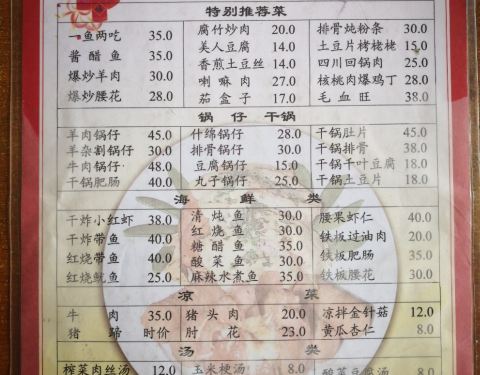 特别推荐菜
一鱼两吃 35.0 腐竹炒肉 20.0 排骨炖粉条 30.0
酱醋鱼 35.0 美人豆腐 14.0 土豆片栲栳栳 15.0
爆炒羊肉 30.0 香煎土豆丝 14.0 四川回锅肉 25.0
爆炒腰花 28.0 喇嘛肉 27.0 核桃肉爆鸡丁 28.0
茄盒子 17.0 毛血旺 38.0
锅仔干锅
羊肉锅仔 45.0 什绵锅仔 28.0 干锅肚片 45.0
羊杂割锅仔 30.0 排骨锅仔 30.0 干锅排骨 38.0
牛肉锅仔 48.0 豆腐锅仔 15.0 干锅千叶豆腐 18.0
干锅肥肠 40.0 丸子锅仔 25.0 干锅土豆片 18.0
海鲜类
干炸小红虾 38.0 清炖鱼 30.0 腰果虾仁 40.0
干炸带鱼 40.0 红烧鱼 30.0 铁板过油肉 20.0
红烧带鱼 40.0 糖醋鱼 35.0 铁板肥肠 35.0
红烧鱿鱼 25.0 酸菜鱼 30.0 铁板腰花 30.0
麻辣水煮鱼 35.0
凉菜
牛肉 35.0 猪头肉 20.0 凉拌金针菇 12.0
猪蹄 时价 肘花 23.0 黄瓜杏仁 8.0
汤类
榨菜肉丝汤 12.0 玉米梗汤 8.0 酸菜豆腐汤 8.0